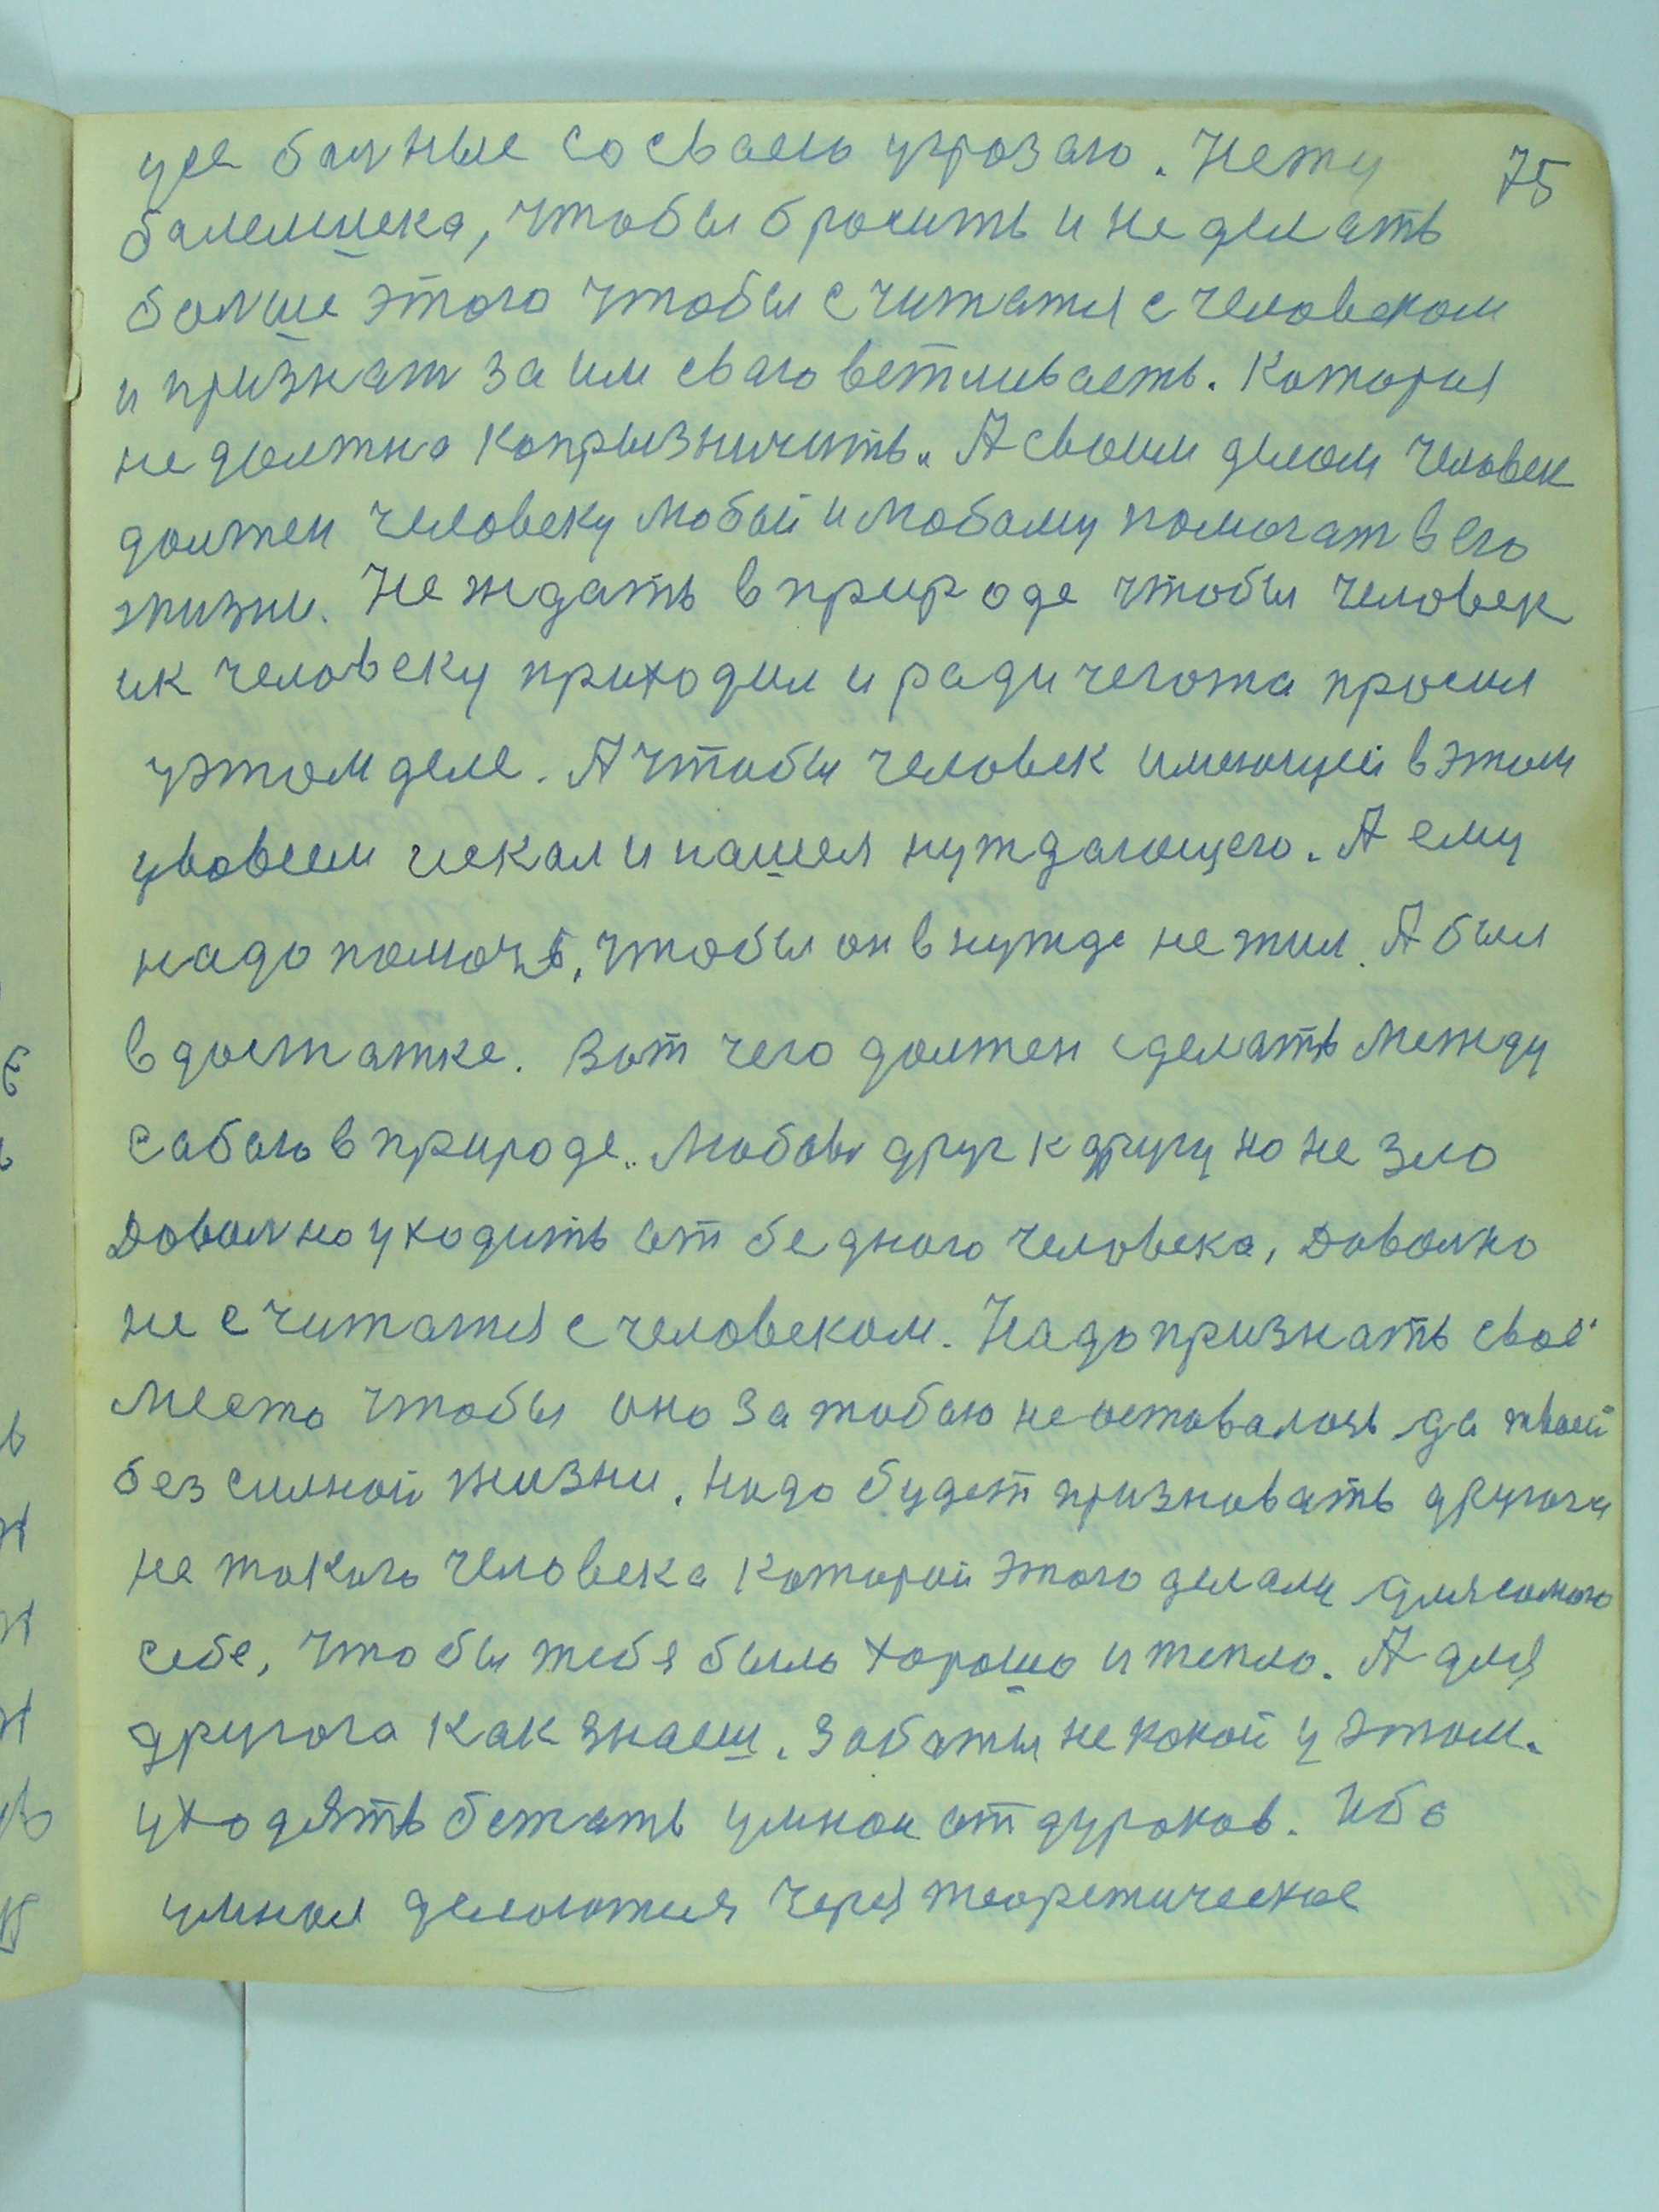 75
усе балные со сваею угрозаю. Нету
балелшека, чтобы бросить и не делать
болше этого чтобы считатя с человеком
и признат за им сваю ветливасть. Которыя
не должна капрызничить. А своим делом человек
должен человеку любой и любому помогат в его
жизни. Не ждать в природе чтобы человек
ик человеку приходил и ради чегота просил
у этом деле. А чтобы человек имеющий в этом
увовсем искал и нашел нуждающего. А ему
надо помочь, чтобы он в нужде не жил. А был
в достатке. Вот чего должен сделать между
сабаю в природе. Любовь друг к другу но не зло
Доволно уходить от бедного человека, доволно
не считатия с человеком. Надо признать своё
место чтобы оно за тобою не оставалось да твоей
без силной жизни. Надо будет признавать другога
не такого человека который этого делали для самого
себе, чтобы тебя было хорошо и тепло. А для
другога как знаеш. Заботы не какой у этом.
уходять бежать умнои от дураков. Ибо
умныя делаютия через теоретическое